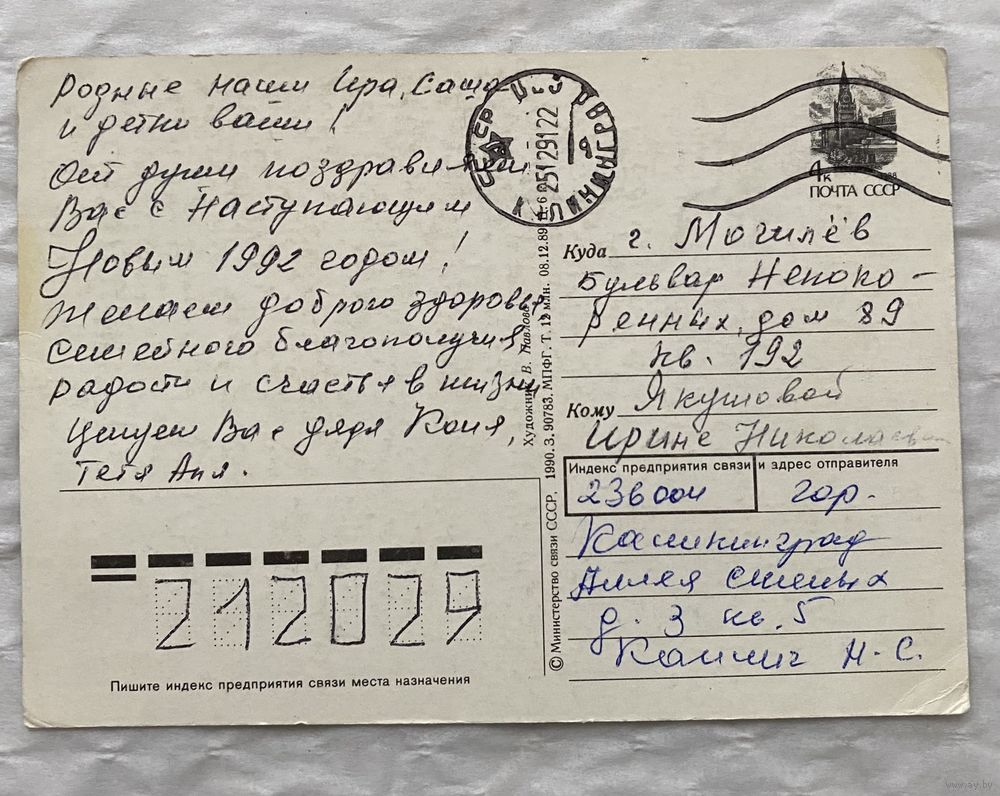 Родные наши Ира, Саша
и детки ваши!
От души поздравляем
Вас с Наступающим
Новым 1992 годом!
Желаем доброго здоровья,
семейного благополучия,
радости и счастья в жизни
Целуем Вас дядя Коля,
тетя Аня.
СССР
КАЛИНИНГРАД
251291 22
4к
ПОЧТА СССР
Куда г. Могилёв
Бульвар Непоко-
ренных, дом 89
кв. 192
Кому Якушовой
Ирине Николаевне
Индекс предприятия связи и адрес отправителя
236004 гор.
Калининград
Аллея смелых
д. 3 кв. 5
Н. С.
212029
Пишите индекс предприятия связи места назначения
© Министерство связи СССР. 1990. З. 90783. МПФГ. Т. 12 млн. 08.12.89
Художник В. Павлов
www.ay.by